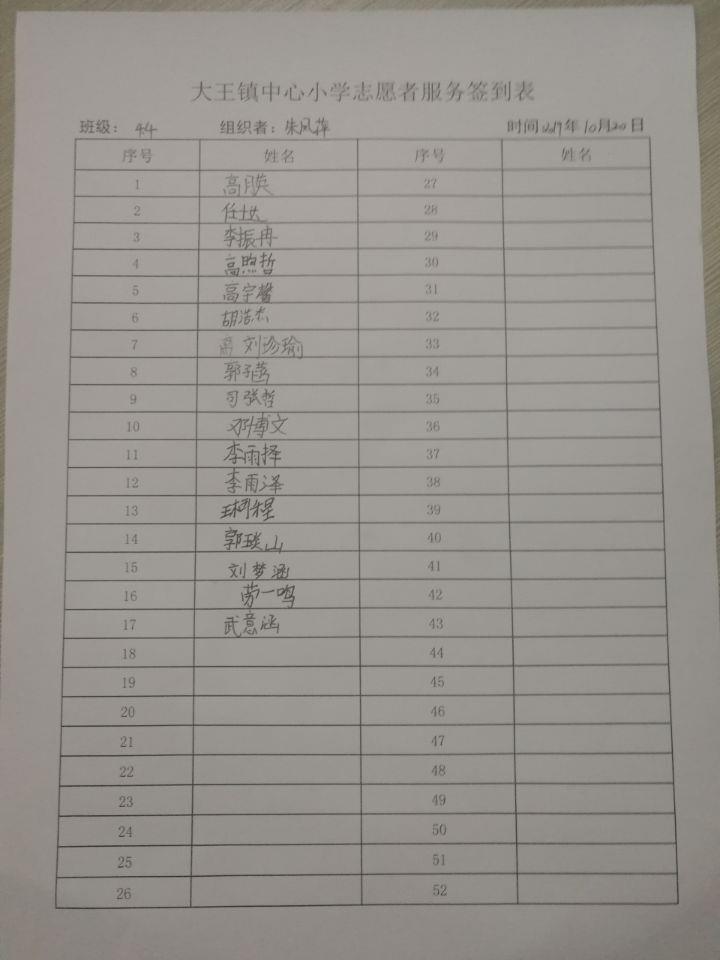 大王镇中心小学志愿者服务签到表
班级： 4.4 组织者：朱凤萍 时间2019年10月20日
序号 姓名 序号 姓名
1 高月英 27
2 28
3 李振冉 29
4 高煦哲 30
5 高宇馨 31
6 胡浩杰 32
7 刘珍瑜 33
8 34
9 司张哲 35
10 邓博文 36
11 李雨择 37
12 李雨泽 38
13 39
14 郭琰山 40
15 刘梦涵 41
16 劳一鸣 42
17 武意涵 43
18 44
19 45
20 46
21 47
22 48
23 49
24 50
25 51
26 52